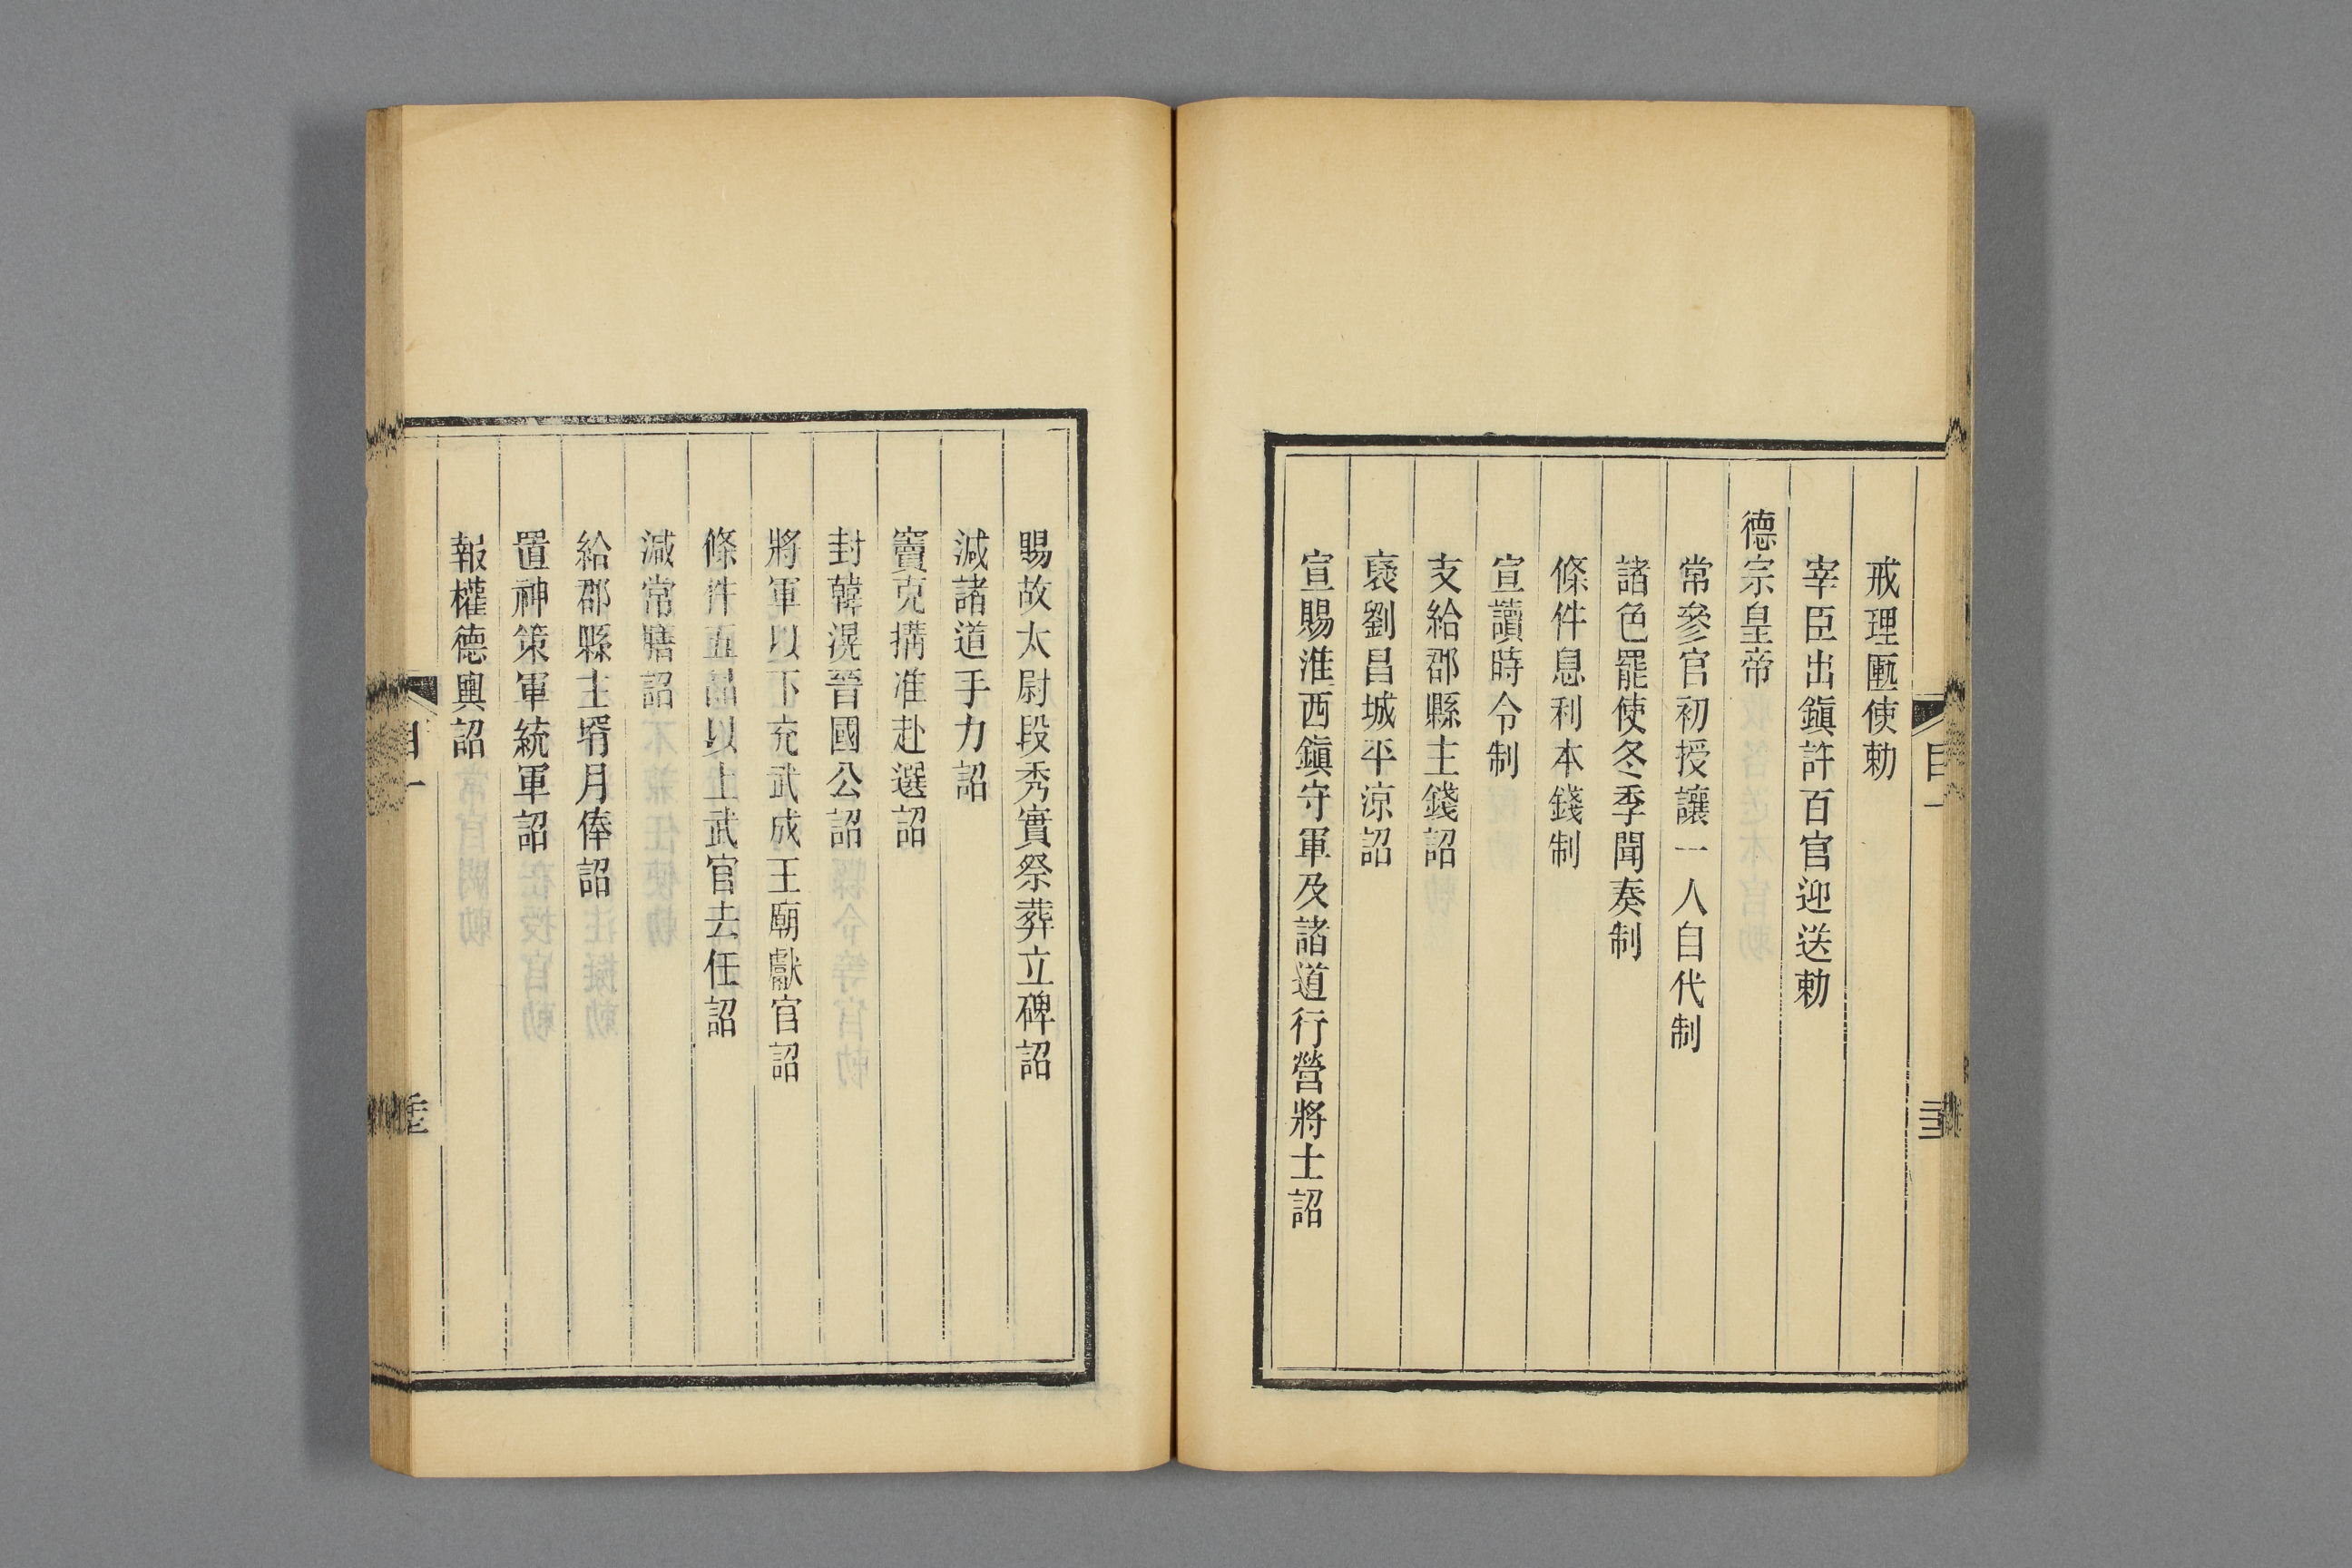 戒理匭使勅
宰臣出鎭許百官迎送勅
德宗皇帝
常參官初授讓一人自代制
諸色罷使冬季聞奏制
條件息利本錢制
宣讀時令制
支給郡縣主錢詔
襃劉昌城平涼詔
宣賜淮西鎭守軍及諸道行營將士詔
賜故太尉段秀實祭葬立碑詔
減諸道手力詔
竇克搆准赴選詔
封韓滉晉國公詔
將軍以下充武成王廟獻官詔
條件五品以上武官去任詔
減常膳詔
給郡縣主壻月俸詔
置神策軍統軍詔
報權德輿詔
目一